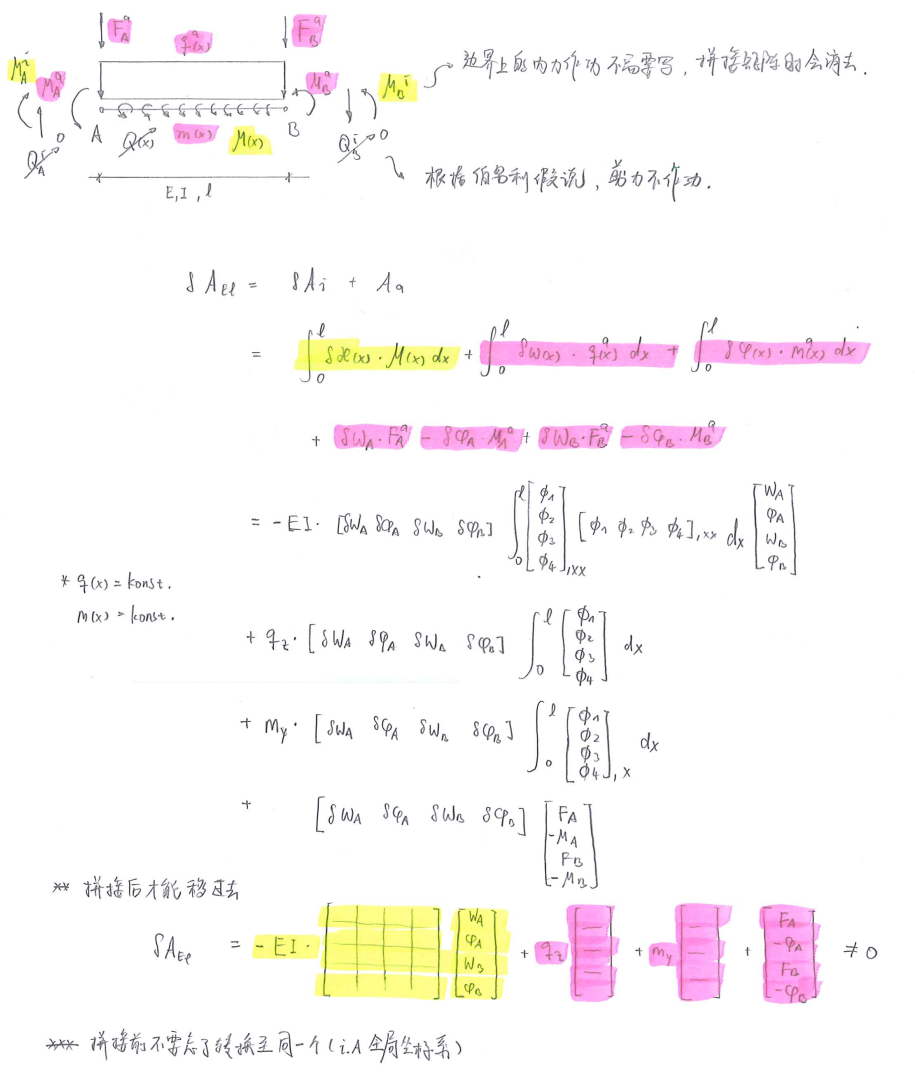 F_A^a F_B^a
q^a(x)
M_A^i M_A^a M_B^a M_B^i 边界上的内力作功不需要写，拼接矩阵时会消去.
A Q(x) m(x) M(x) B
Q_A^i 0 Q_B^i 0
根据伯努利假说，剪力不作功.
E, I, l
δA_El = δA_i + A_a
= ∫_0^l δϰ(x)·M(x) dx + ∫_0^l δw(x)·q^a(x) dx + ∫_0^l δφ(x)·m^a(x) dx
+ δW_A·F_A^a - δφ_A·M_A^a + δW_B·F_B^a - δφ_B·M_B^a
= -EI· [δW_A δφ_A δW_B δφ_B] ∫_0^l [ϕ1 ϕ2 ϕ3 ϕ4],xx [ϕ1 ϕ2 ϕ3 ϕ4],xx dx [W_A φ_A W_B φ_B]
* q(x) = konst.
m(x) = konst.
+ q_z· [δW_A δφ_A δW_B δφ_B] ∫_0^l [ϕ1 ϕ2 ϕ3 ϕ4] dx
+ m_y· [δW_A δφ_A δW_B δφ_B] ∫_0^l [ϕ1 ϕ2 ϕ3 ϕ4],x dx
+ [δW_A δφ_A δW_B δφ_B] [F_A -M_A F_B -M_B]
** 拼接后才能移过去
δA_El = -EI· [ ] [W_A φ_A W_B φ_B] + q_z [ ] + m_y [ ] + [F_A -φ_A F_B -φ_B] ≠ 0
*** 拼接前不要忘了转换至同一个(i.A 全局坐标系)